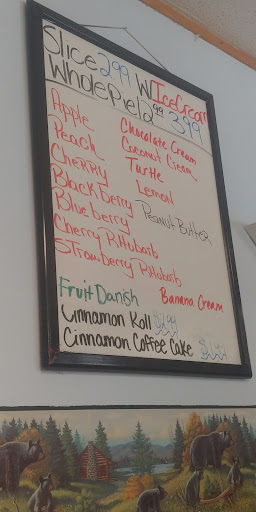 Slice 2.99 W/Ice Cream 3.99
Whole Pie 12.99
Apple
Peach
CHeRRY
Black Berry
Blueberry
Cherry R.Hubarb
STrawberry R.Hubarb
Chocolate Cream
Coconut Cream
Turtle
Lemon
Peanut Butter
Fruit Danish
Banana Cream
Cinnamon Roll $2.99
Cinnamon Coffee Cake